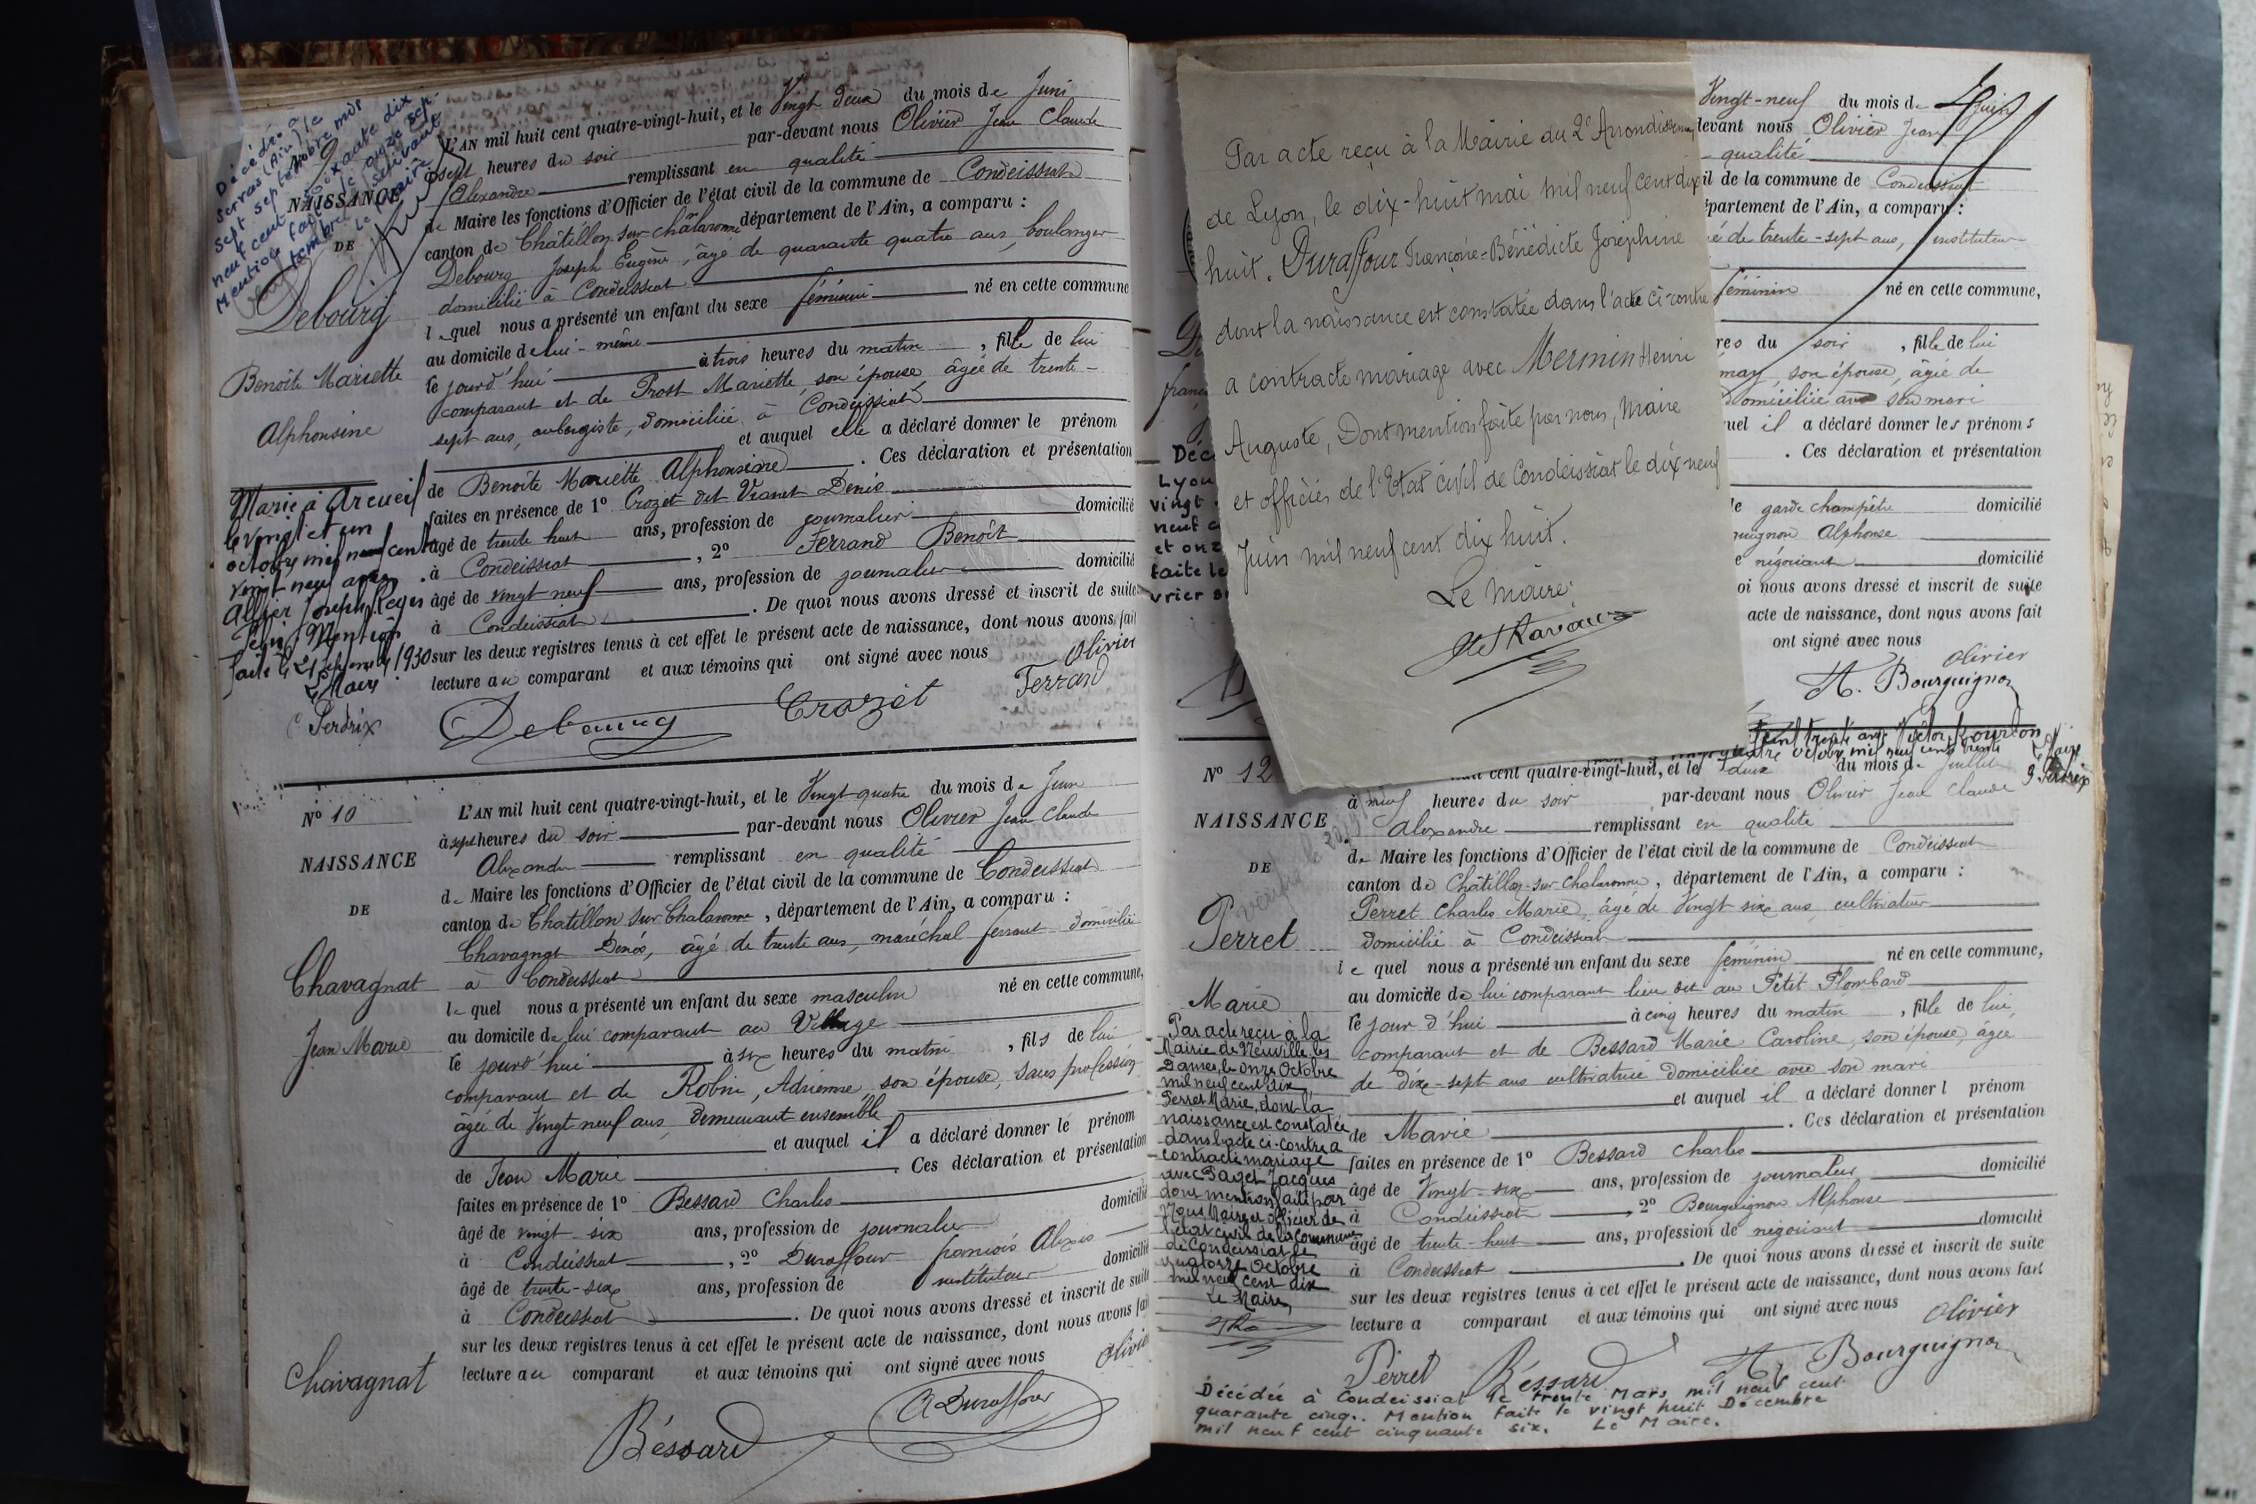 Décédée à
Servas (Ain) le
sept septembre mil
neuf cent soixante dix
Mention faite le onze sep-
tembre suivant
Le Maire
NAISSANCE
DE
Debourg
Benoîte Mariette
Alphonsine
Mariée à Arcueil
le vingt et un
octobre mil neuf cent
vingt neuf avec
Joseph
Mention
faite le 1930
Le Maire
Perdrix
L'AN mil huit cent quatre-vingt-huit, et le Vingt deux du mois de Juin
à sept heures du soir par-devant nous Olivier Jean Claude
Alexandre remplissant en qualité
de Maire les fonctions d'Officier de l'état civil de la commune de Condeissiat
canton de Châtillon sur Chalaronne département de l'Ain, a comparu :
Debourg Joseph Eugène, âgé de quarante quatre ans, boulanger
domicilié à Condeissiat
lequel nous a présenté un enfant du sexe féminin né en cette commune
au domicile de lui-même
le jourd'hui à trois heures du matin, fille de lui
comparant et de Prost Mariette, son épouse, âgée de trente-
sept ans, aubergiste, domiciliée à Condeissiat
et auquel elle a déclaré donner le prénom
de Benoîte Mariette Alphonsine. Ces déclaration et présentation
faites en présence de 1° Crozet dit Vianet Denis domicilié
âgé de trente huit ans, profession de journalier
à Condeissiat, 2° Ferrand Benoît domicilié
âgé de vingt neuf ans, profession de journalier
à Condeissiat. De quoi nous avons dressé et inscrit de suite
sur les deux registres tenus à cet effet le présent acte de naissance, dont nous avons fait
lecture au comparant et aux témoins qui ont signé avec nous
Olivier
Debourg Crozet Ferrand
N° 10
NAISSANCE
DE
Chavagnat
Jean Marie
Chavagnat
L'AN mil huit cent quatre-vingt-huit, et le Vingt quatre du mois de Juin
à sept heures du soir par-devant nous Olivier Jean Claude
Alexandre remplissant en qualité
de Maire les fonctions d'Officier de l'état civil de la commune de Condeissiat
canton de Châtillon sur Chalaronne, département de l'Ain, a comparu :
Chavagnat Denis, âgé de trente ans, maréchal ferrant domicilié
à Condeissiat
lequel nous a présenté un enfant du sexe masculin né en cette commune,
au domicile de lui comparant au Village
le jourd'hui à six heures du matin, fils de lui
comparant et de Robin, Adrienne, son épouse, sans profession
âgée de Vingt neuf ans, demeurant ensemble
et auquel il a déclaré donner le prénom
de Jean Marie. Ces déclaration et présentation
faites en présence de 1° Bessard Charles domicilié
âgé de vingt six ans, profession de journalier
à Condeissiat, 2° Duraffour François Alexis domicilié
âgé de trente-six ans, profession de instituteur
à Condeissiat. De quoi nous avons dressé et inscrit de suite
sur les deux registres tenus à cet effet le présent acte de naissance, dont nous avons fait
lecture au comparant et aux témoins qui ont signé avec nous Olivier
Béssard A Duraffour
Par acte reçu à la Mairie du 2e Arrondissement
de Lyon, le dix-huit mai mil neuf cent dix
huit. Duraffour Françoise-Bénédicte Joséphine
dont la naissance est constatée dans l'acte ci-contre
a contracté mariage avec Mermin Henri
Auguste, Dont mention faite par nous, Maire
et officier de l'Etat civil de Condeissiat le dix neuf
Juin mil neuf cent dix huit.
Le Maire:
Décé
Lyon
vingt
neuf c
et onz
faite le
vrier
Vingt-neuf du mois de Juin
devant nous Olivier Jean
qualité
il de la commune de Condeissiat
épartement de l'Ain, a comparu :
é de trente-sept ans, instituteur
féminin né en cette commune,
res du soir, fille de lui
son épouse, âgée de
domiciliée avec son mari
uel il a déclaré donner les prénoms
. Ces déclaration et présentation
garde champêtre domicilié
Alphonse
négociant domicilié
oi nous avons dressé et inscrit de suite
acte de naissance, dont nous avons fait
ont signé avec nous
Olivier
A. Bourguignon
N° 12
NAISSANCE
DE
Perret
Marie
Par acte reçu à la
Mairie de Neuville les
Dames, le onze Octobre
mil neuf cent dix
Perret Marie, dont la
naissance est constatée
dans l'acte ci-contre a
contracté mariage
avec Paget Jacques
dont mention faite par
Nous Maire et officier de
l'état civil de la Commune
de Condeissiat le
quatorze Octobre
mil neuf cent dix
Le Maire,
cent quatre-vingt-huit, et le deux du mois de Juillet
à neuf heures du soir par-devant nous Olivier Jean Claude
Alexandre remplissant en qualité
de Maire les fonctions d'Officier de l'état civil de la commune de Condeissiat
canton de Châtillon-sur-Chalaronne, département de l'Ain, a comparu :
Perret Charles Marie, âgé de Vingt six ans, cultivateur
domicilié à Condeissiat
lequel nous a présenté un enfant du sexe féminin né en cette commune,
au domicile de lui comparant lieu dit au Petit Plombard
le jour d'hui à cinq heures du matin, fille de lui,
comparant et de Bessard Marie Caroline, son épouse, âgée
de dix-sept ans cultivatrice domiciliée avec son mari
et auquel il a déclaré donner l prénom
de Marie. Ces déclaration et présentation
faites en présence de 1° Bessard Charles
âgé de Vingt-six ans, profession de journalier domicilié
à Condeissiat, 2° Bourguignon Alphonse
âgé de trente-huit ans, profession de négociant domicilié
à Condeissiat. De quoi nous avons dressé et inscrit de suite
sur les deux registres tenus à cet effet le présent acte de naissance, dont nous avons fait
lecture a comparant et aux témoins qui ont signé avec nous Olivier
Perret Béssard A. Bourguignon
Décédée à Condeissiat le trente Mars mil neuf cent
quarante cinq. Mention faite le vingt huit Décembre
mil neuf cent cinquante six. Le Maire.